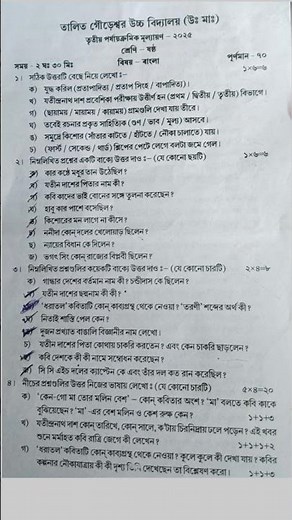 তালিত গৌড়েশ্বর উচ্চ বিদ্যালয় (উঃ মাঃ)
তৃতীয় পর্যায়ক্রমিক মূল্যায়ণ - ২০২৫
শ্রেণি - ষষ্ঠ
বিষয় - বাংলা
পূর্ণমান - ৭০
সময় - ২ ঘঃ ৩০ মিঃ
১। সঠিক উত্তরটি বেছে নিয়ে লেখো :- ১×৬=৬
ক) যুদ্ধ করিল (প্রতাপাদিত্য / প্রতাপ সিংহ / বাপাদিত্য)।
খ) যতীন্দ্রনাথ দাশ প্রবেশিকা পরীক্ষায় উত্তীর্ণ হন (প্রথম / দ্বিতীয় / তৃতীয়) বিভাগে।
গ) (ছায়াময় / মায়াময় / কায়াময়) গ্রামগুলি দেখা যায় তীরে।
ঘ) তবেই রচনার প্রকৃত সাহিত্যিক (গুণ / ভাব / মূল্য) আসবে।
ঙ) সমুদ্রে কিশোর (সাঁতার কাটতে / হাঁটতে / নৌকা চালাতে) যায়।
চ) (ফার্স্ট / সেকেন্ড / থার্ড) স্লিপের পেটে লেগে বলটা জমে গেল।
২। নিম্নলিখিত প্রশ্নের একটি বাক্যে উত্তর দাও :- (যে কোনো ছয়টি) ১×৬=৬
ক) কার কণ্ঠে মধুর তান উঠেছিল ?
খ) যতীন দাশের পিতার নাম কী ?
গ) কবি কাদের ভাই বোনের সঙ্গে তুলনা করেছেন ?
ঘ) হাবু কার পাশে বসেছিল ?
ঙ) কিশোরের মন লাগে না কীসে ?
চ) ননীদা কোন্ দলের খেলোয়াড় ছিলেন ?
ছ) ন্যায়ের বিধান কে দিলেন ?
জ) ভগৎ সিং কোন্ রাজ্যের বিপ্লবী ছিলেন ?
৩। নিম্নলিখিত প্রশ্নগুলির কয়েকটি বাক্যে উত্তর দাও :- (যে কোনো চারটি) ২×৪=৮
ক) গান্ধার দেশের বর্তমান নাম কী ? চণ্ডীদাস কে ছিলেন ?
খ) যতীন দাশের ছদ্মনাম কী কী ?
গ) 'ধরাতল' কবিতাটি কোন্ কাব্যগ্রন্থ থেকে নেওয়া ? 'তরণী' শব্দের অর্থ কী ?
ঘ) নিতাই শাস্তি পেল কেন ?
ঙ) দুজন প্রখ্যাত বাঙালি বিজ্ঞানীর নাম লেখো।
চ) যতীন দাশের পিতা কোথায় চাকরি করতেন ? এবং কেন চাকরি ছাড়লেন ?
ছ) কবি দেশকে কী কী নামে সম্বোধন করেছেন ?
জ) সি সি এইচ দলের ক্যাপ্টেন কে এবং তাঁর দল কত রান করেছিল ?
৪। নীচের প্রশ্নগুলির উত্তর নিজের ভাষায় লেখো : (যে কোনো চারটি) ৫×৪=২০
ক) 'কেন গো মা তোর মলিন বেশ' – কোন্ কবিতার অংশ ? 'মা' বলতে কবি কাকে
বুঝিয়েছেন ? 'মা' -এর বেশ মলিন ও কেশ রুক্ষ কেন ? ১+১+৩
খ) যতীন্দ্রনাথ দাশ কোন্ তারিখে, কোন্ সালে, ক'টায় চিরনিদ্রায় ঢলে পড়েন ? এই খবর
শুনে মর্মাহত কবি রাত্রি জেগে কী লেখেন ? ১+১+১+২
গ) 'ধরাতল' কবিতাটি কোন্ কাব্যগ্রন্থ থেকে নেওয়া ? কূলে কূলে কী দেখা যায় ? কবির
কল্পনার নৌকাযাত্রায় কী কী দৃশ্য তিনি দেখেছেন তা বিশ্লেষণ করো। ১+১+৩